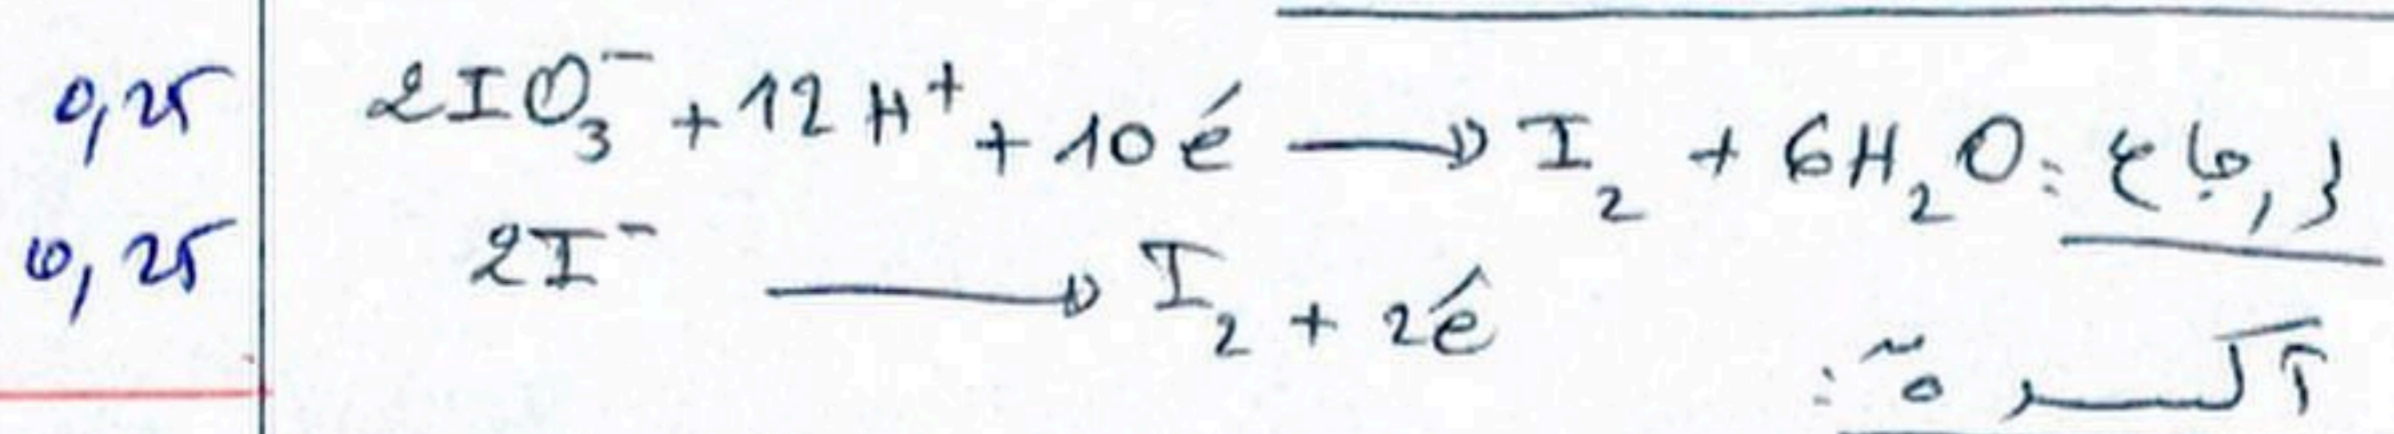 0,25 2IO₃⁻ + 12H⁺ + 10é → I₂ + 6H₂O : إرجاع
0,25 2I⁻ → I₂ + 2é
أكسدة :